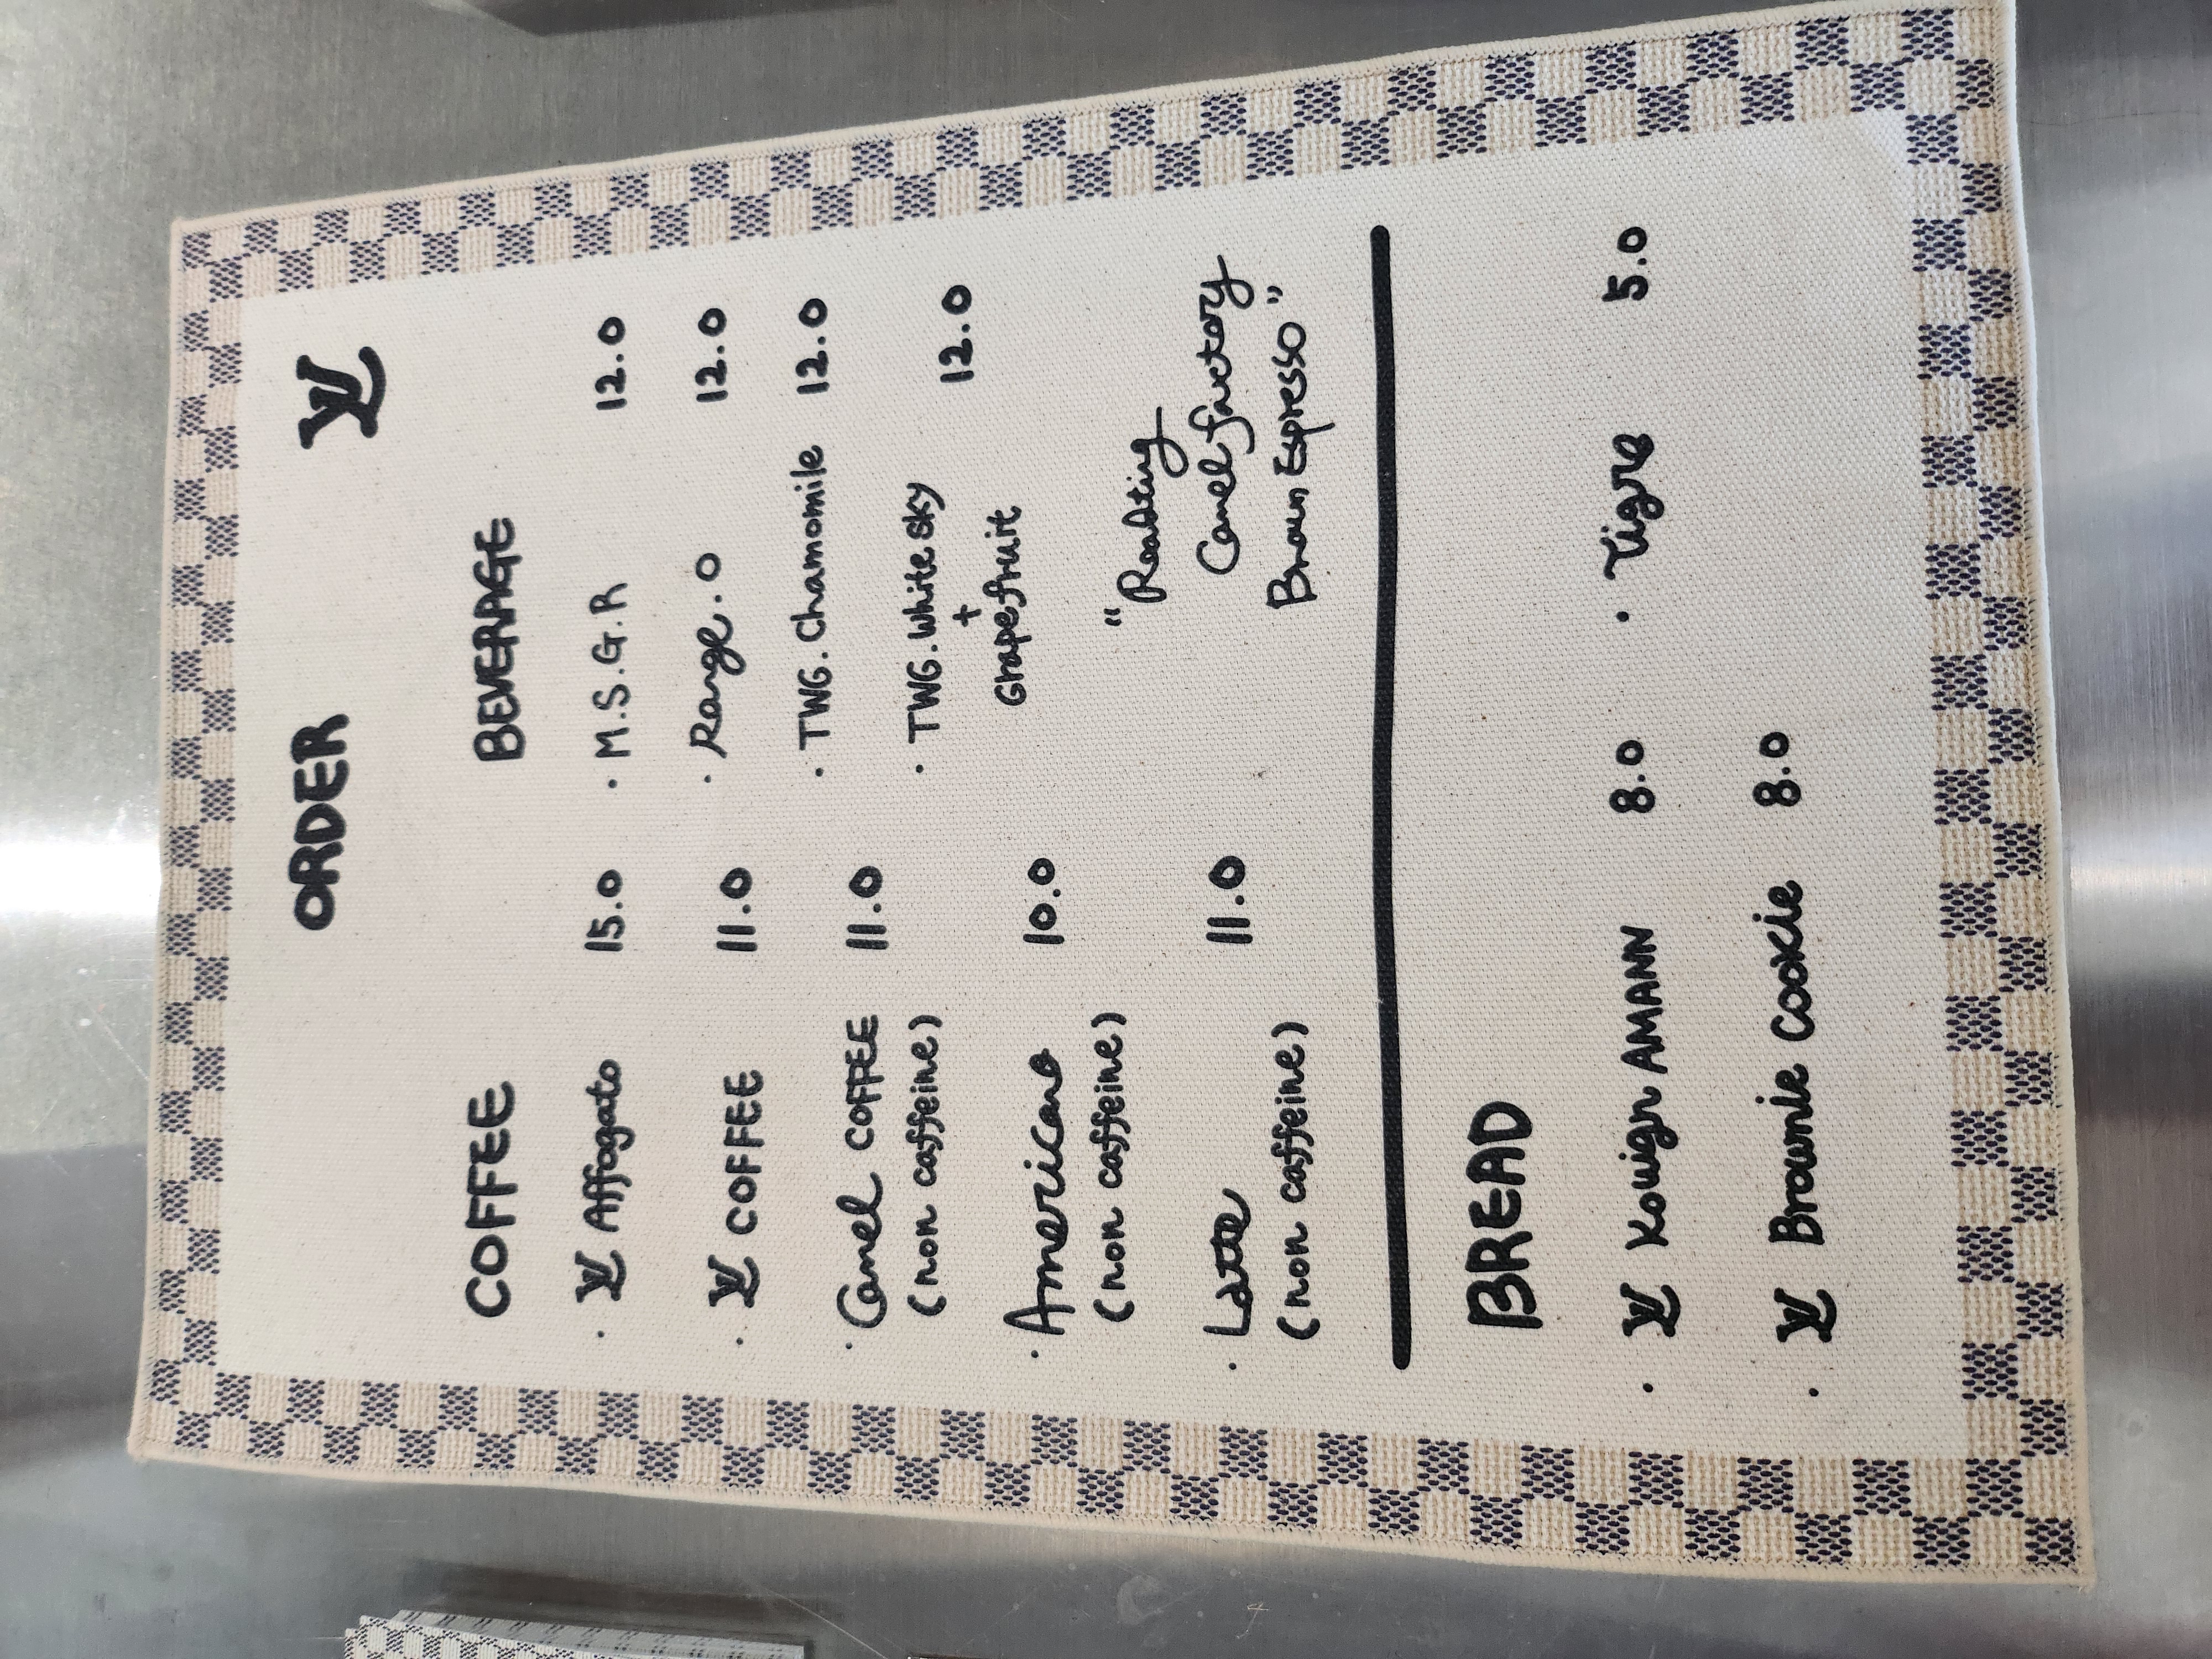 ORDER LV
COFFEE
· LV Affogato 15.0
· LV COFFEE 11.0
· Camel COFFEE 11.0
(non caffeine)
· Americano 10.0
(non caffeine)
· Latte 11.0
(non caffeine)
BEVERAGE
· M.S.G.R 12.0
· Range.O 12.0
· TWG.Chamomile 12.0
· TWG.White sky
+ 12.0
Grapefruit
"Reading
Camel factory
Brown Espresso"
BREAD
· LV Kouign AMANN 8.0
· LV Brownie Cookie 8.0
· Tigre 5.0